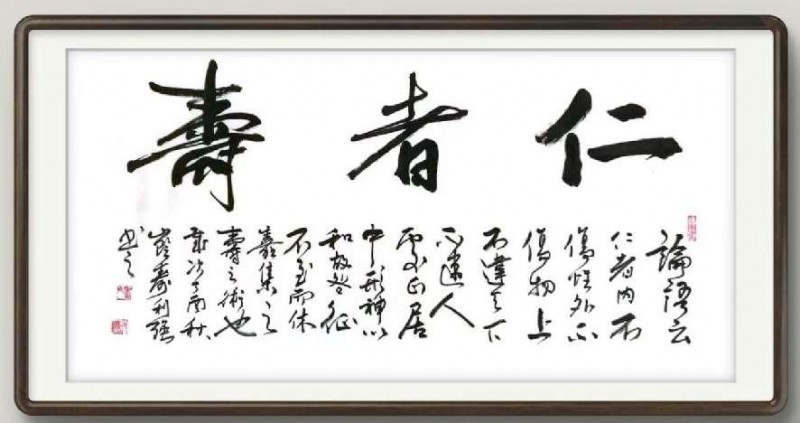 仁者壽
論語云
仁者内不
傷性外不
傷物上
不違天下
不違人
處正居
中形神以
和故咎征
不至而休
嘉集之
壽之術也
歲次丁酉秋
利強
書之